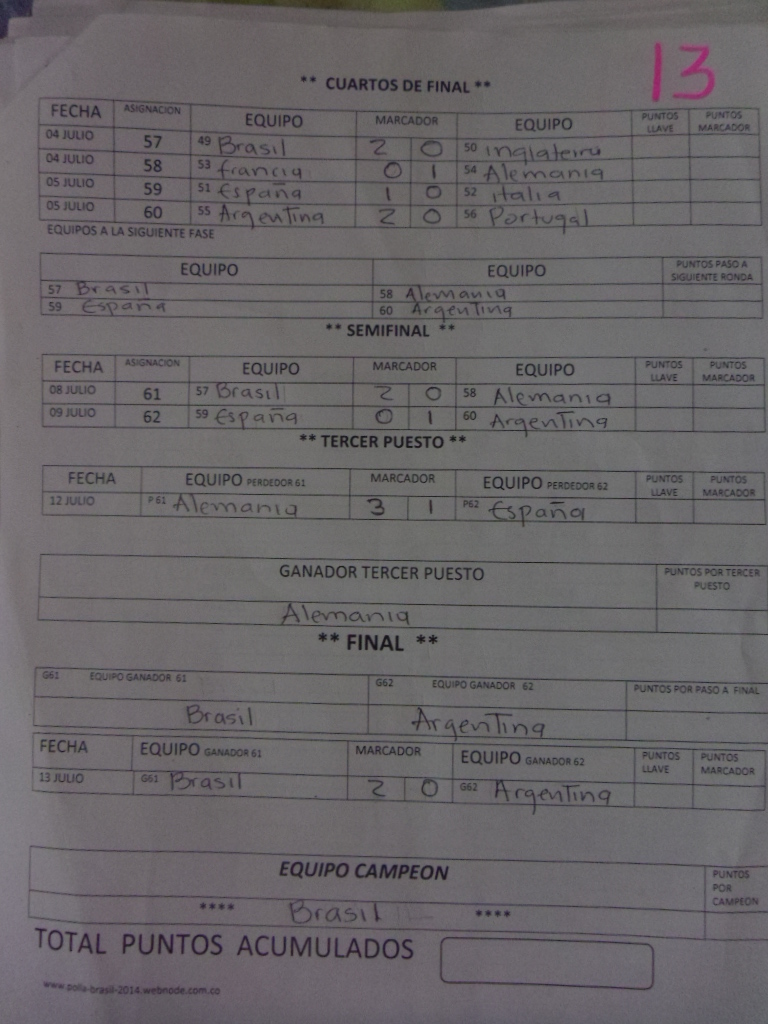 13
** CUARTOS DE FINAL **
FECHA ASIGNACION EQUIPO MARCADOR EQUIPO PUNTOS LLAVE PUNTOS MARCADOR
04 JULIO 57 49 Brasil 2 0 50 inglaterra
04 JULIO 58 53 francia 0 1 54 Alemania
05 JULIO 59 51 España 1 0 52 italia
05 JULIO 60 55 Argentina 2 0 56 Portugal
EQUIPOS A LA SIGUIENTE FASE
EQUIPO EQUIPO PUNTOS PASO A SIGUIENTE RONDA
57 Brasil 58 Alemania
59 España 60 Argentina
** SEMIFINAL **
FECHA ASIGNACION EQUIPO MARCADOR EQUIPO PUNTOS LLAVE PUNTOS MARCADOR
08 JULIO 61 57 Brasil 2 0 58 Alemania
09 JULIO 62 59 España 0 1 60 Argentina
** TERCER PUESTO **
FECHA EQUIPO PERDEDOR 61 MARCADOR EQUIPO PERDEDOR 62 PUNTOS LLAVE PUNTOS MARCADOR
12 JULIO P 61 Alemania 3 1 P62 España
GANADOR TERCER PUESTO PUNTOS POR TERCER PUESTO
Alemania
** FINAL **
G61 EQUIPO GANADOR 61 G62 EQUIPO GANADOR 62 PUNTOS POR PASO A FINAL
Brasil Argentina
FECHA EQUIPO GANADOR 61 MARCADOR EQUIPO GANADOR 62 PUNTOS LLAVE PUNTOS MARCADOR
13 JULIO G61 Brasil 2 0 G62 Argentina
EQUIPO CAMPEON PUNTOS POR CAMPEON
**** Brasil ****
TOTAL PUNTOS ACUMULADOS
www.polla-brasil-2014.webnode.com.co